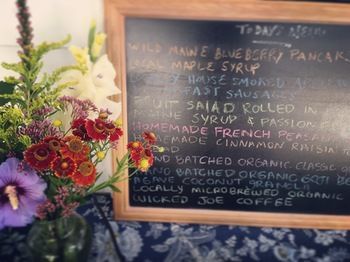 TODAYS MENU
WILD MAINE BLUEBERRY PANCAK
LOCAL MAPLE SYRUP
HOUSE SMOKED
FAST SAUSAGES
FRUIT SALAD ROLLED IN
MAINE SYRUP & PASSION F
HOMEMADE FRENCH PEAS
HOMEMADE CINNAMON RAISIN T
HAND BATCHED ORGANIC CLASSIC
HAND BATCHED ORGANIC GOJI BE
AGAVE COCONUT GRANOLA
LOCALLY MICROBREWED ORGANIC
WICKED JOE COFFEE